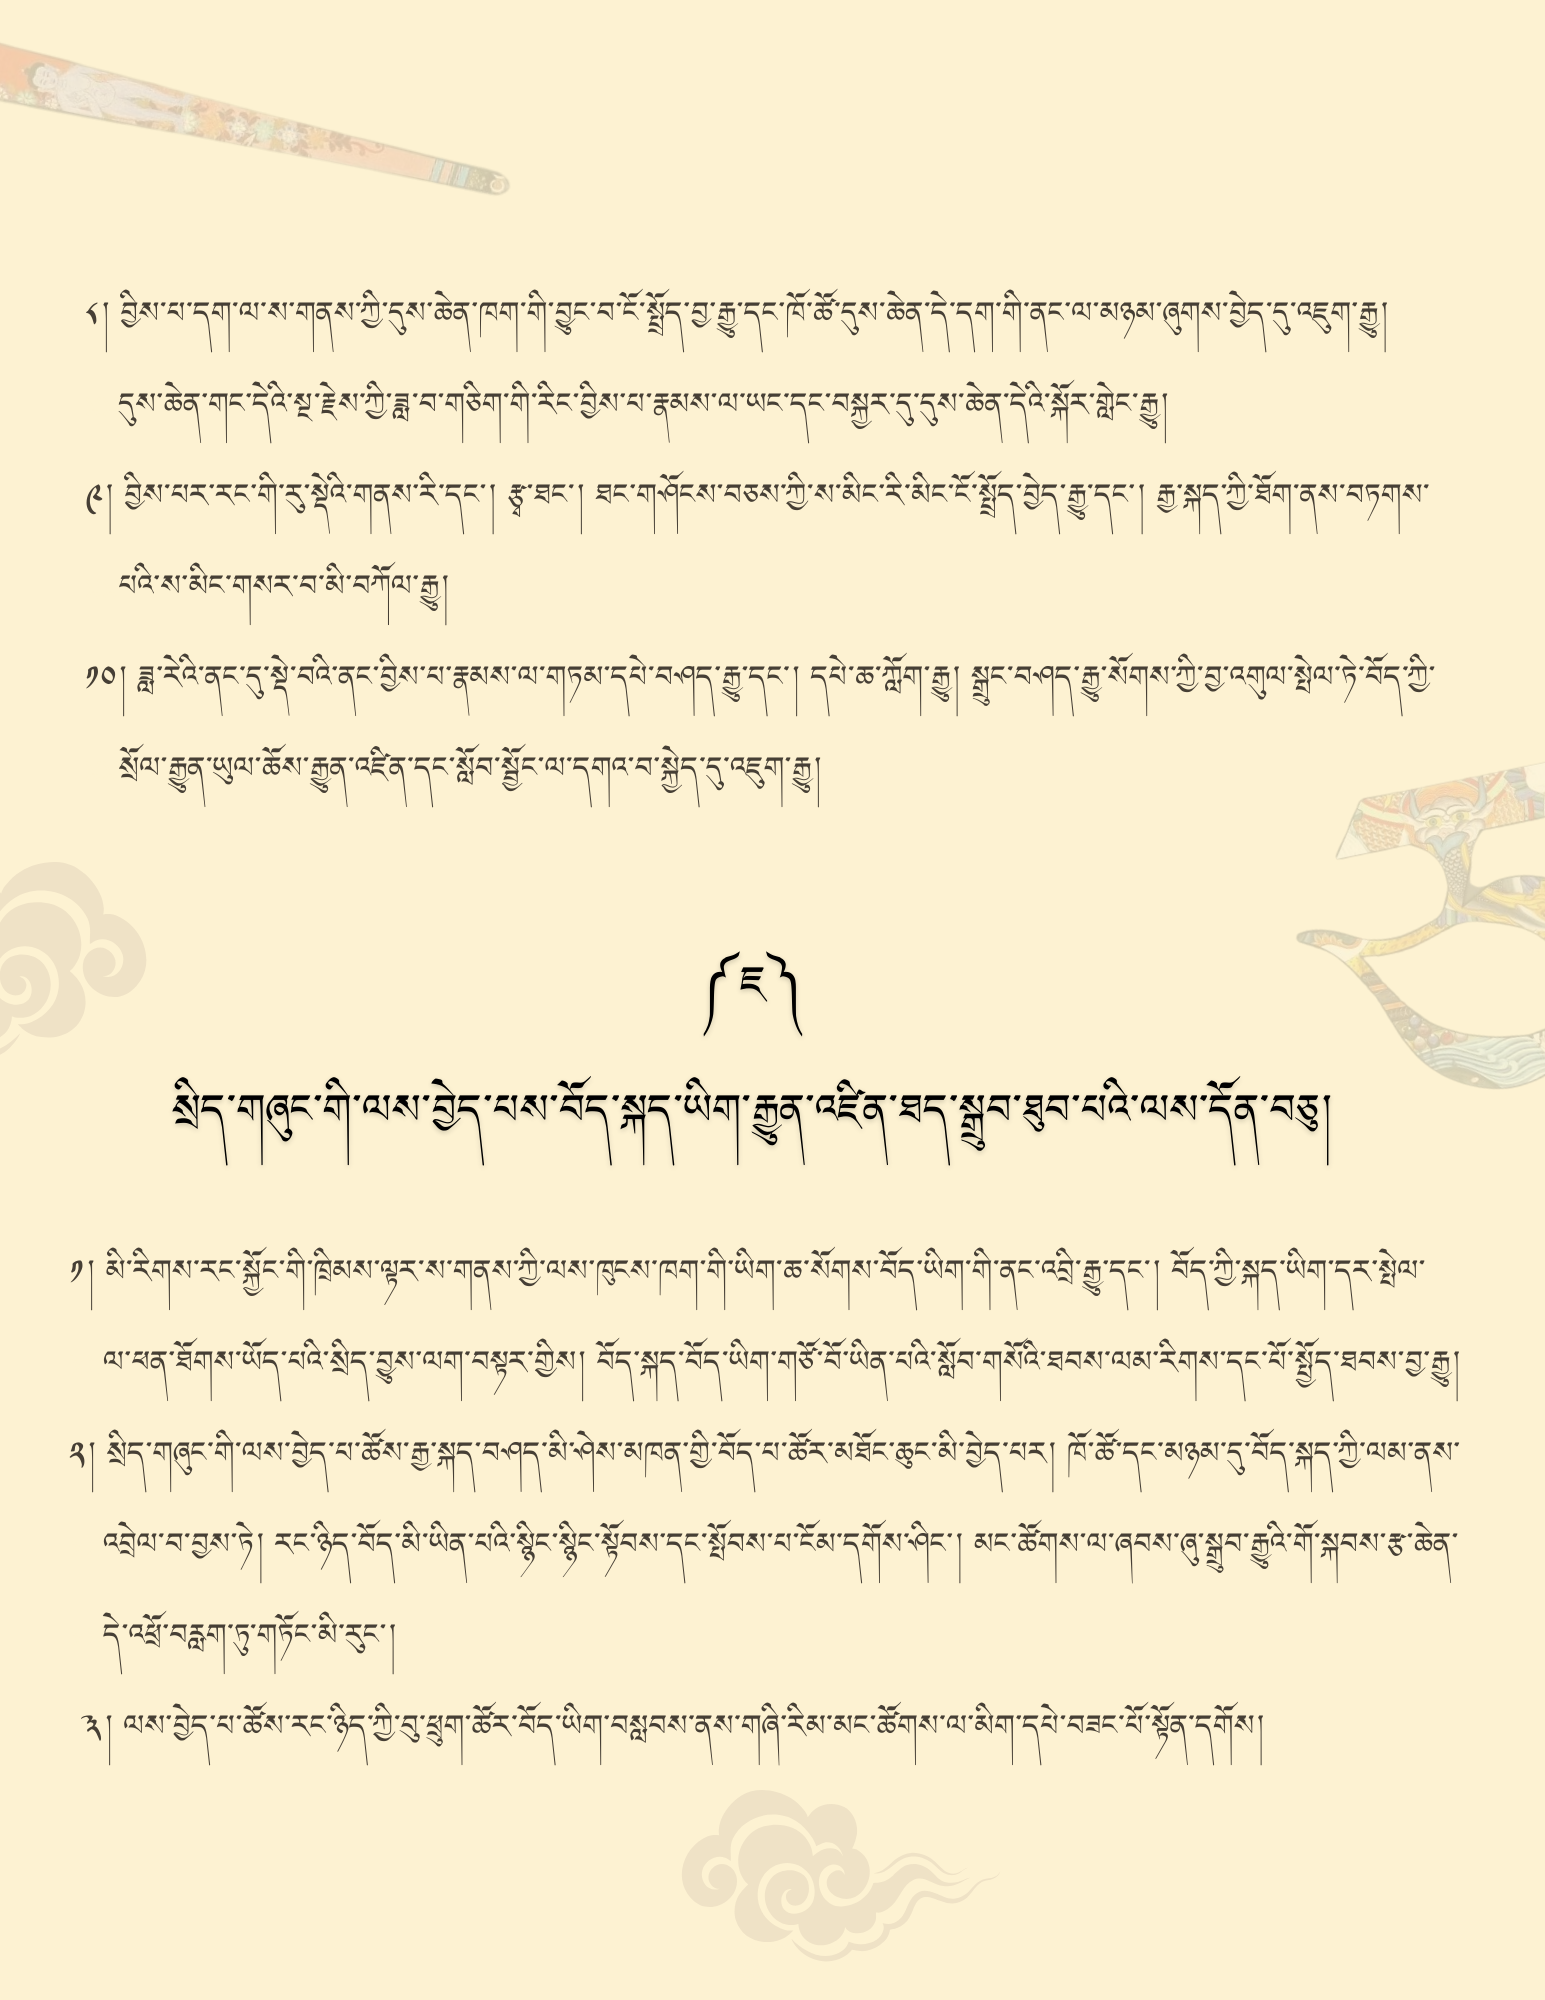 ༨། བྱིས་པ་དག་ལ་ས་གནས་ཀྱི་དུས་ཆེན་ཁག་གི་བྱུང་བ་ངོ་སྤྲོད་བྱ་རྒྱུ་དང་ཁོ་ཚོ་དུས་ཆེན་དེ་དག་གི་ནང་ལ་མཉམ་ཞུགས་བྱེད་དུ་འཇུག་རྒྱུ།
དུས་ཆེན་གང་དེའི་སྔ་རྗེས་ཀྱི་ཟླ་བ་གཅིག་གི་རིང་བྱིས་པ་རྣམས་ལ་ཡང་དང་བསྐྱར་དུ་དུས་ཆེན་དེའི་སྐོར་གླེང་རྒྱུ།
༩། བྱིས་པར་རང་གི་རུ་སྡེའི་གནས་རི་དང་། རྩྭ་ཐང་། ཐང་གཤོངས་བཅས་ཀྱི་ས་མིང་རི་མིང་ངོ་སྤྲོད་བྱེད་རྒྱུ་དང་། རྒྱ་སྐད་ཀྱི་ཐོག་ནས་བཏགས་
པའི་ས་མིང་གསར་བ་མི་བཀོལ་རྒྱུ།
༡༠། ཟླ་རེའི་ནང་དུ་སྡེ་བའི་ནང་བྱིས་པ་རྣམས་ལ་གཏམ་དཔེ་བཤད་རྒྱུ་དང་། དཔེ་ཆ་ཀློག་རྒྱུ། སྒྲུང་བཤད་རྒྱུ་སོགས་ཀྱི་བྱ་འགུལ་སྤེལ་ཏེ་བོད་ཀྱི་
སྲོལ་རྒྱུན་ཡུལ་ཆོས་རྒྱུན་འཛིན་དང་སློབ་སྦྱོང་ལ་དགའ་བ་སྐྱེད་དུ་འཇུག་རྒྱུ།
༼ ཇ ༽
སྲིད་གཞུང་གི་ལས་བྱེད་པས་བོད་སྐད་ཡིག་རྒྱུན་འཛིན་ཐད་སྒྲུབ་ཐུབ་པའི་ལས་དོན་བཅུ།
༡། མི་རིགས་རང་སྐྱོང་གི་ཁྲིམས་ལྟར་ས་གནས་ཀྱི་ལས་ཁུངས་ཁག་གི་ཡིག་ཆ་སོགས་བོད་ཡིག་གི་ནང་འབྲི་རྒྱུ་དང་། བོད་ཀྱི་སྐད་ཡིག་དར་སྤེལ་
ལ་ཕན་ཐོགས་ཡོད་པའི་སྲིད་བྱུས་ལག་བསྟར་གྱིས། བོད་སྐད་བོད་ཡིག་གཙོ་བོ་ཡིན་པའི་སློབ་གསོའི་ཐབས་ལམ་རིགས་དང་པོ་སྤྱོད་ཐབས་བྱ་རྒྱུ།
༢། སྲིད་གཞུང་གི་ལས་བྱེད་པ་ཚོས་རྒྱ་སྐད་བཤད་མི་ཤེས་མཁན་གྱི་བོད་པ་ཚོར་མཐོང་ཆུང་མི་བྱེད་པར། ཁོ་ཚོ་དང་མཉམ་དུ་བོད་སྐད་ཀྱི་ལམ་ནས་
འབྲེལ་བ་བྱས་ཏེ། རང་ཉིད་བོད་མི་ཡིན་པའི་སྙིང་སྙིང་སྟོབས་དང་སྤོབས་པ་ངོམ་དགོས་ཤིང་། མང་ཚོགས་ལ་ཞབས་ཞུ་སྒྲུབ་རྒྱུའི་གོ་སྐབས་རྩ་ཆེན་
དེ་འཕྲོ་བརླག་ཏུ་གཏོང་མི་རུང་།
༣། ལས་བྱེད་པ་ཚོས་རང་ཉིད་ཀྱི་བུ་ཕྲུག་ཚོར་བོད་ཡིག་བསླབས་ནས་གཞི་རིམ་མང་ཚོགས་ལ་མིག་དཔེ་བཟང་པོ་སྟོན་དགོས།